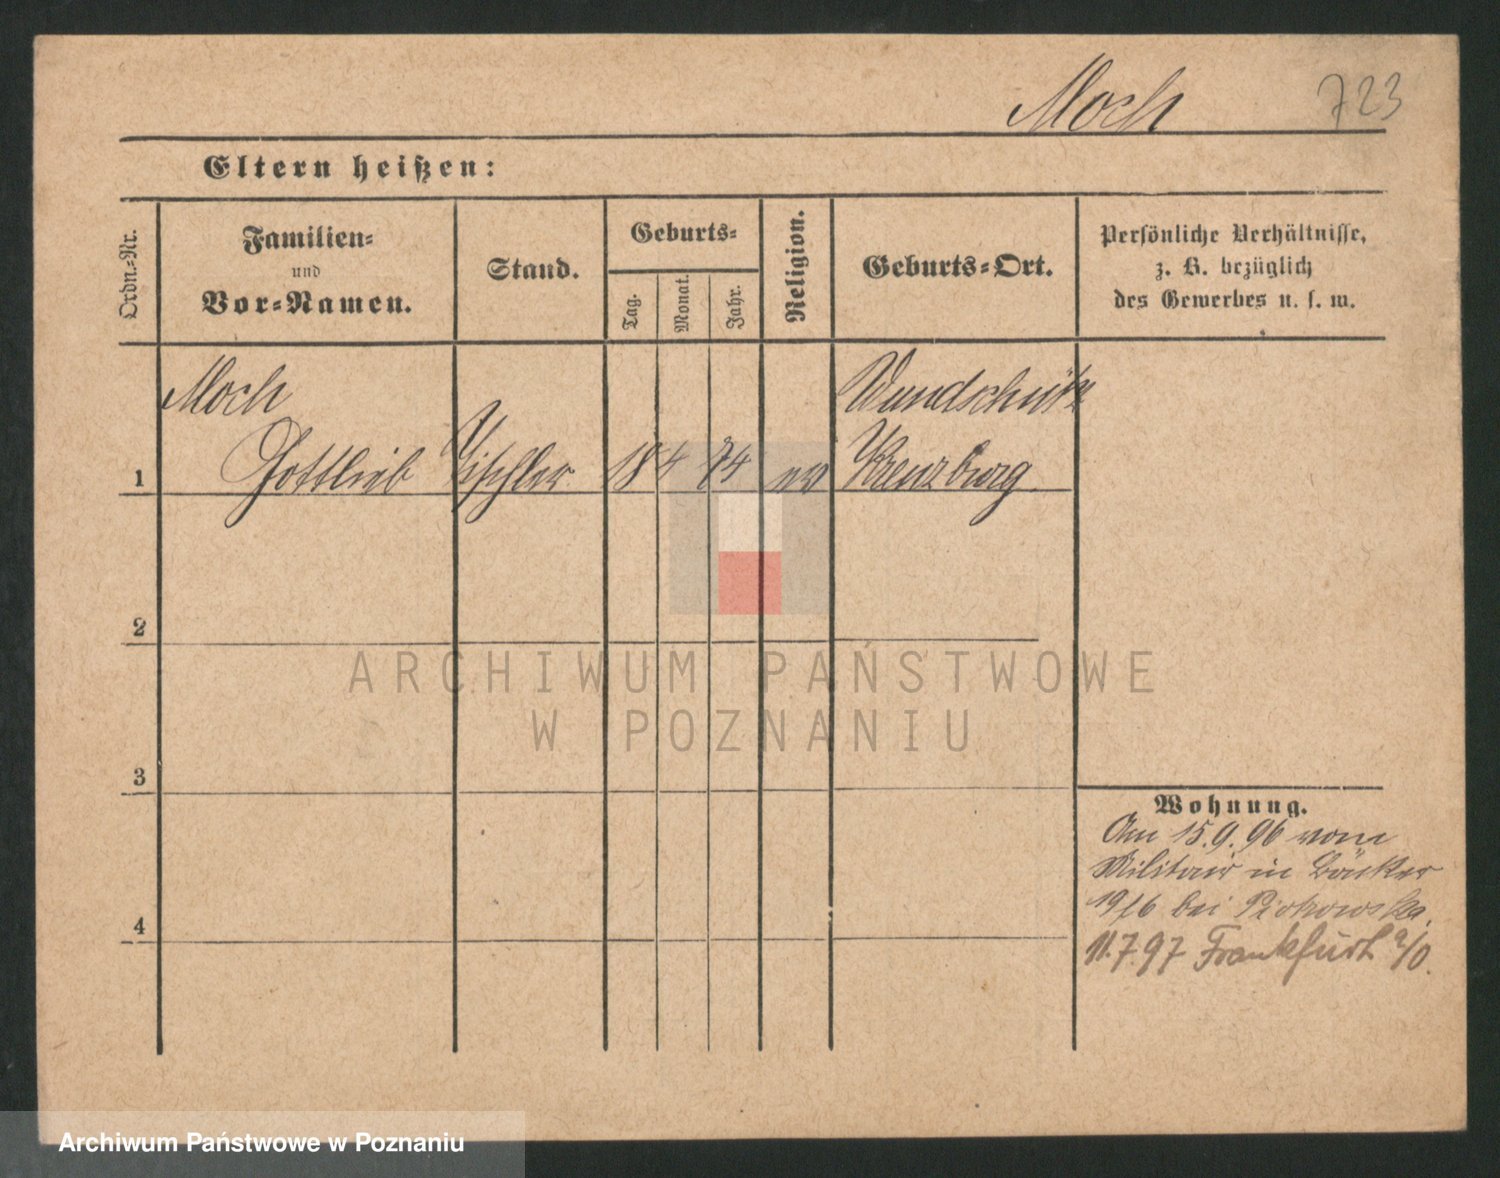 Moch 723
Eltern heißen:
Ordn.-Nr.
Familien-
und
Vor-Namen.
Stand.
Geburts-
Tag.
Monat.
Jahr.
Religion.
Geburts-Ort.
Persönliche Verhältnisse,
z. B. bezüglich
des Gewerbes u. s. w.
Moch Wundschütz
1 Gottlieb Tischler 18 4 74 ev Kreuzburg
2
3
4
Wohnung.
Am 15.9.96 vom
Militair in Bäcker
19/6 bei
11.7.97 Frankfurt a/O.
ARCHIWUM PAŃSTWOWE
W POZNANIU
Archiwum Państwowe w Poznaniu